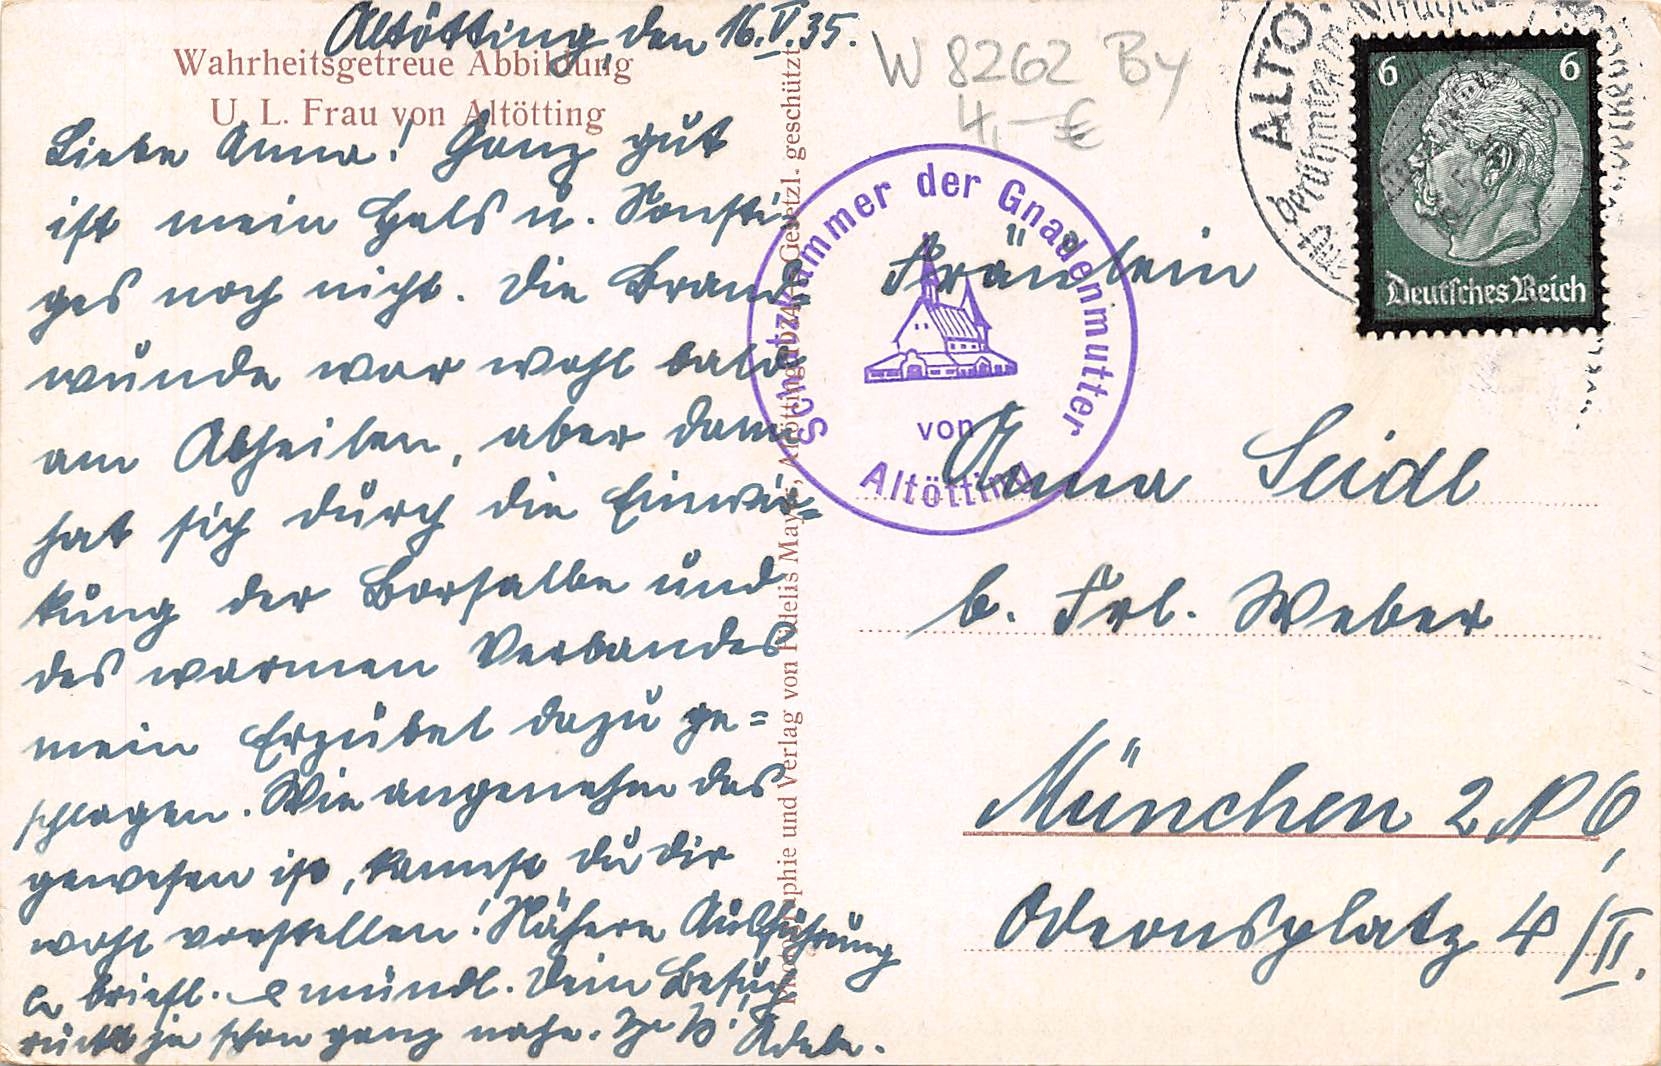 Altötting, den 16.V.35.
Wahrheitsgetreue Abbildung
U. L. Frau von Altötting
Liebe Anna! Ganz gut
ist mein Hals u. Sonsti-
ges noch nicht. Die Brand-
wunde war wohl bald
am Abheilen, aber dann
hat sich durch die Einwir=
kung der Borsalbe und
des warmen Verbandes
mein Erzübel dazu ge=
schlagen. Wie angenehm das
gewesen ist, kannst du dir
wohl vorstellen! Nähere Ausführung
briefl. mündl. Dein Besuch
rückt ja schon ganz nahe.
Photographie und Verlag von Fidelis Mayer, Altötting Gesetzl. geschützt.
W 8262 By
4,-€
Schatzkammer der Gnadenmutter
von
Altötting
ALTÖ
berühmter
6 6
Deutsches Reich
Fräulein
Anna Seidl
b. Frl. Weber
München 2 N 6,
Odeonsplatz 4/II.